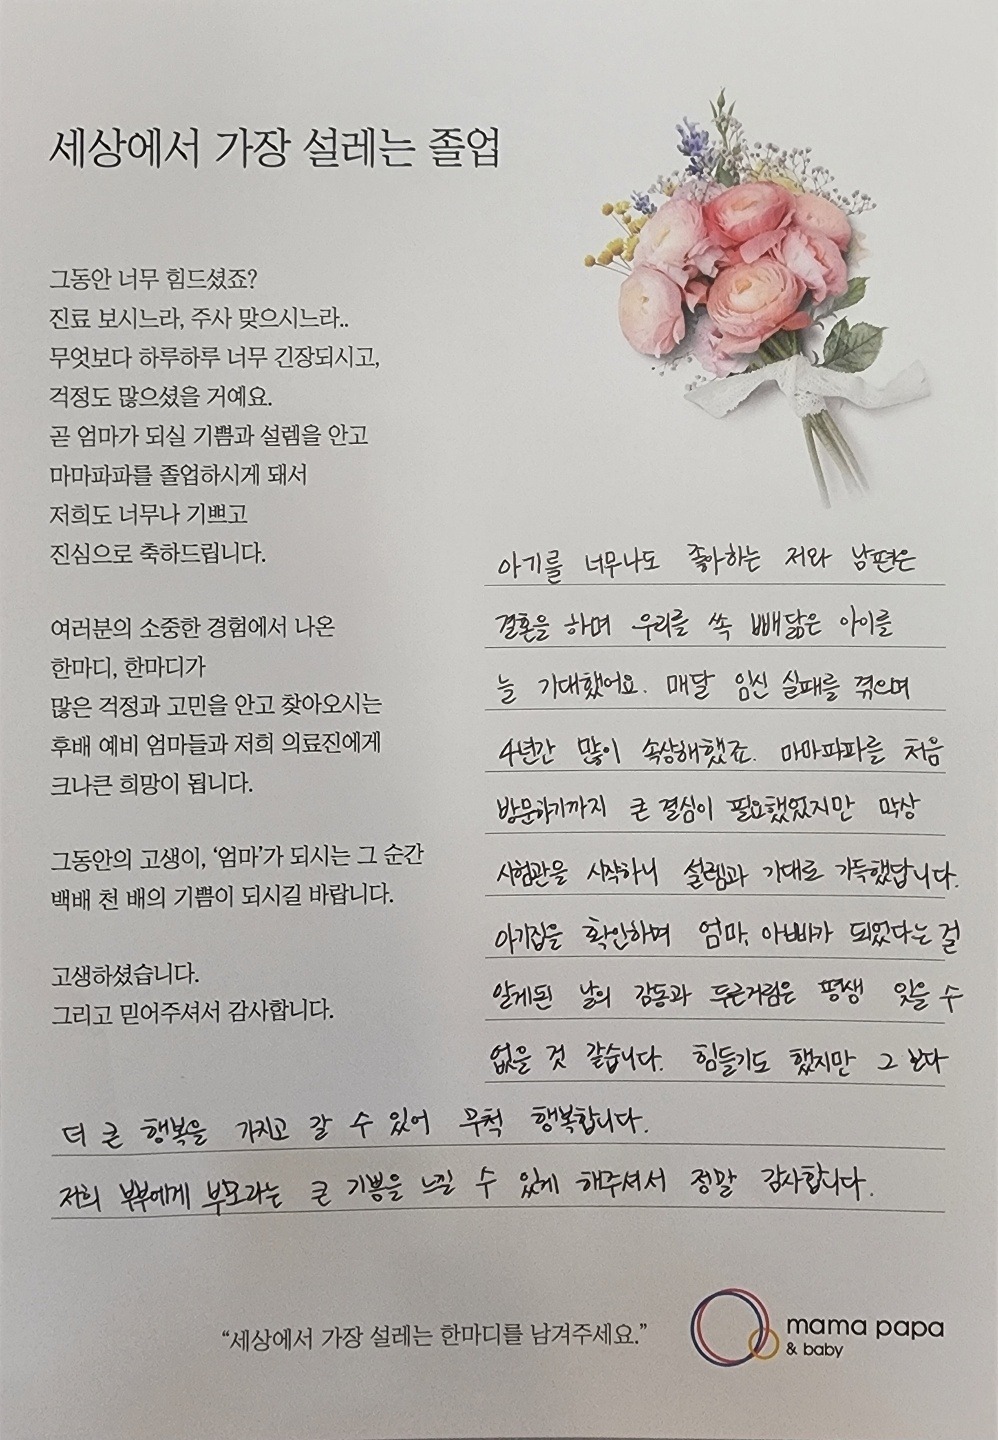 세상에서 가장 설레는 졸업
그동안 너무 힘드셨죠?
진료 보시느라, 주사 맞으시느라..
무엇보다 하루하루 너무 긴장되시고,
걱정도 많으셨을 거예요.
곧 엄마가 되실 기쁨과 설렘을 안고
마마파파를 졸업하시게 돼서
저희도 너무나 기쁘고
진심으로 축하드립니다.
여러분의 소중한 경험에서 나온
한마디, 한마디가
많은 걱정과 고민을 안고 찾아오시는
후배 예비 엄마들과 저희 의료진에게
크나큰 희망이 됩니다.
그동안의 고생이, ‘엄마’가 되시는 그 순간
백배 천 배의 기쁨이 되시길 바랍니다.
고생하셨습니다.
그리고 믿어주셔서 감사합니다.
아기를 너무나도 좋아하는 저와 남편은
결혼을 하며 우리를 쏙 빼닮은 아이를
늘 기대했어요. 매달 임신 실패를 겪으며
4년간 많이 속상해했죠. 마마파파를 처음
방문하기까지 큰 결심이 필요했었지만 막상
시험관을 시작하니 설렘과 기대로 가득했답니다.
아기집을 확인하며 엄마, 아빠가 되었다는 걸
알게된 날의 감동과 두근거림은 평생 잊을 수
없을 것 같습니다. 힘들기도 했지만 그 보다
더 큰 행복을 가지고 갈 수 있어 무척 행복합니다.
저희 부부에게 부모라는 큰 기쁨을 느낄 수 있게 해주셔서 정말 감사합니다.
“세상에서 가장 설레는 한마디를 남겨주세요.”
mama papa
& baby